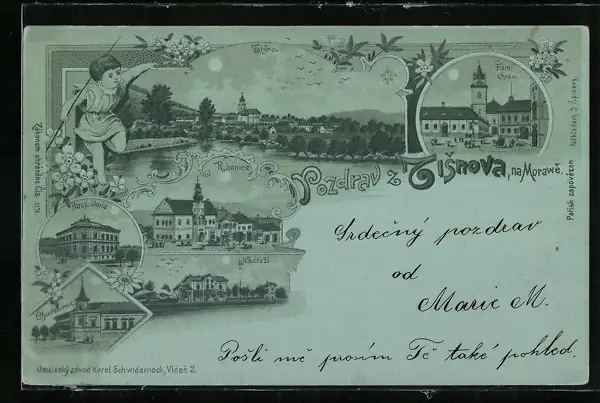 Tišnov
Farní
chrám
Radnice
Pozdrav z Tišnova, na Moravě.
Hosp. škola
Nádraží
Chudobinec
Zákonem chráněno čís.
Nákladem J. Špinery
Patisk zapovězen
Srdečný pozdrav
od
Marie M.
Pošli mě prosím Tě také pohled.
Umělecký závod Karel Schwidernoch, Vídeň 2.